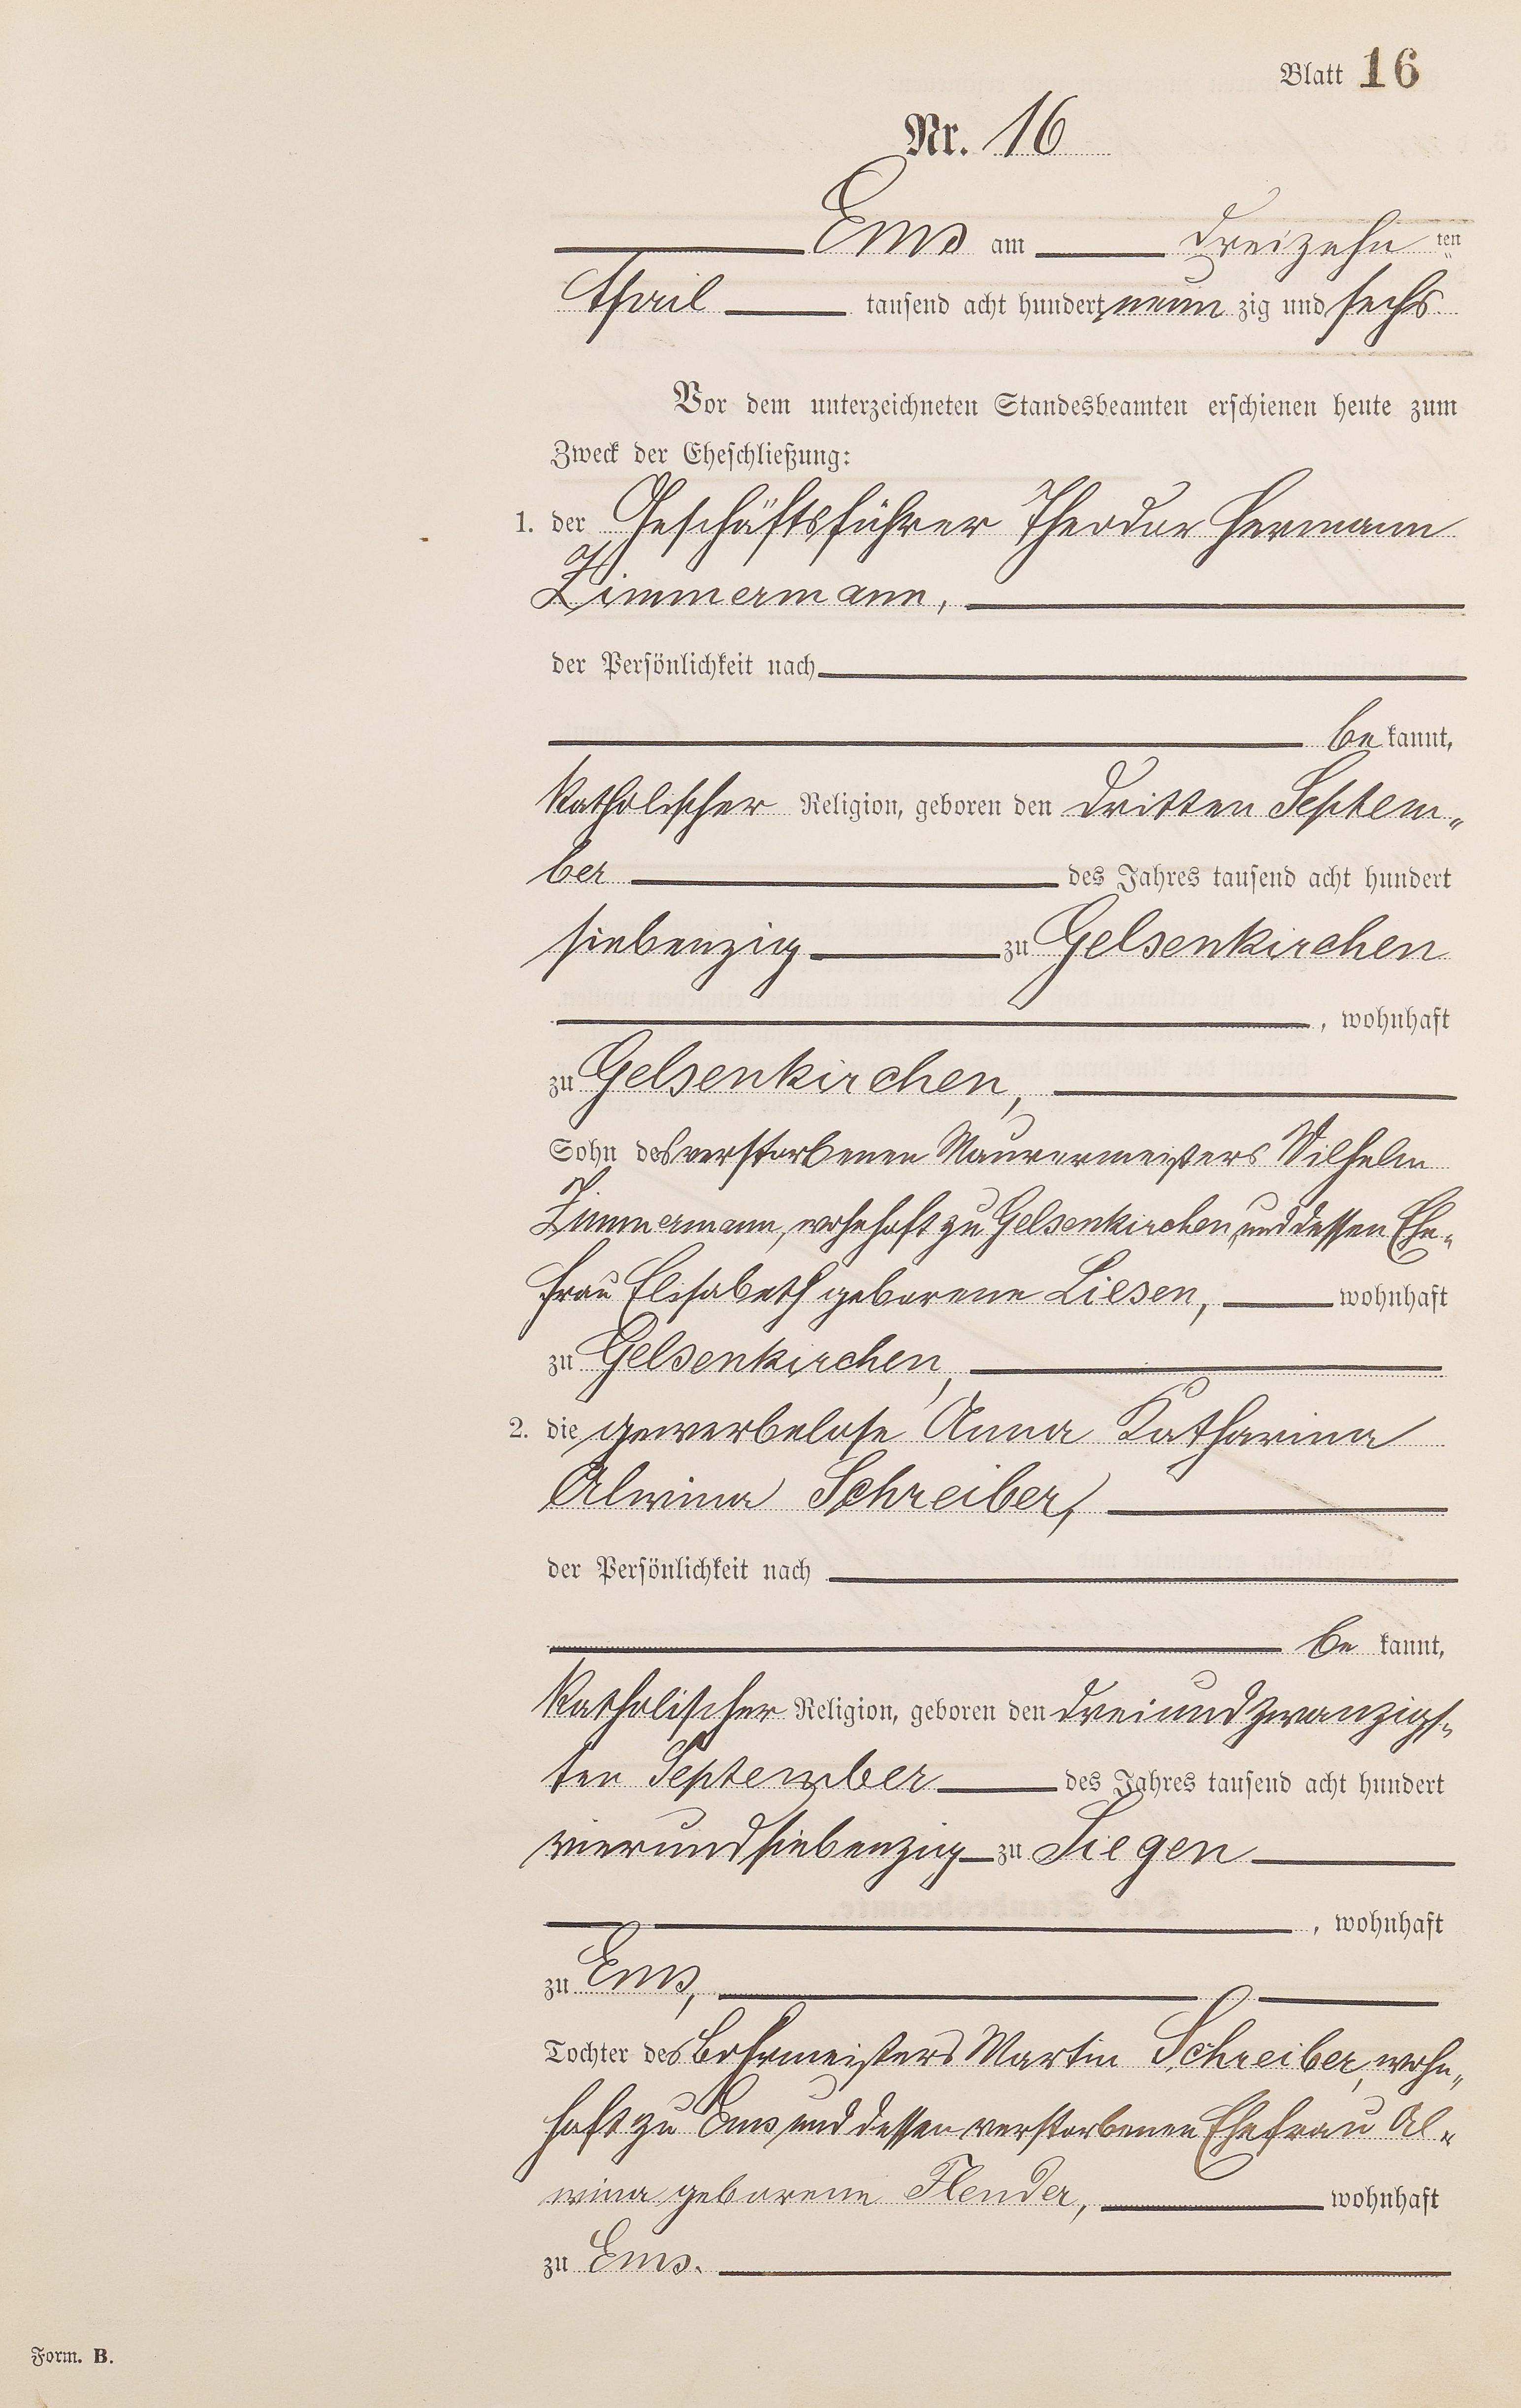 Blatt 16
Nr. 16
Ems am dreizehn ten
April tausend acht hundert neun zig und sechs
Vor dem unterzeichneten Standesbeamten erschienen heute zum
Zweck der Eheschließung:
1. der Geschäftsführer Theodor Hermann
Zimmermann,
der Persönlichkeit nach
be kannt,
katholischer Religion, geboren den dritten Septem„
ber des Jahres tausend acht hundert
siebenzig zu Gelsenkirchen
, wohnhaft
zu Gelsenkirchen,
Sohn des verstorbenen Maurermeisters Wilhelm
Zimmermann, wohnhaft zu Gelsenkirchen, und dessen Ehe„
frau Elisabeth geborene Liesen, wohnhaft
zu Gelsenkirchen,
2. die gewerbelose Anna Katharina
Alwina Schreiber,
der Persönlichkeit nach
be kannt,
katholischer Religion, geboren den dreiundzwanzigs„
ten September des Jahres tausend acht hundert
vierundsiebenzig zu Siegen
, wohnhaft
zu Ems,
Tochter des Bohrmeisters Martin Schreiber, wohn„
haft zu Ems und dessen verstorbenen Ehefrau Al„
wina geborene Flender, wohnhaft
zu Ems.
Form. B.